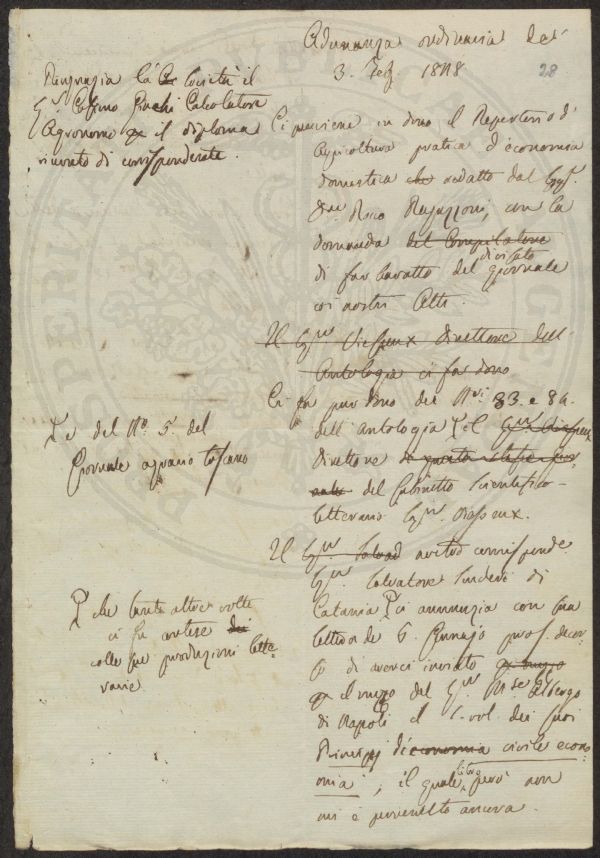 Adunanza ordinaria del
3. Feb. 1828
28
Ringrazia la Società il
Sig.r Cosimo Giachi Calcolatore
Agronomo il diploma
inviato di corrispondente.
Ci perviene in dono il Repertorio d'
Agricoltura pratica d'economia
domestica che redatto dal Sig.r
Rocco Ragazzoni, con la
domanda del Compilatore
di far baratto del divisato giornale
coi nostri Atti.
Il Sig.r Viesseux direttore dell'
Antologia ci fa dono
Ci fa pur dono dei N.ri 83. e 84.
dell'Antologia il Sig.r Viesseux
Direttore
del Gabinetto Scientifico-
letterario Sig.r Viesseux.
E del N.o 5. del
Giornale agrario toscano
Il Sig.r Salvad nostro corrisponde
Sig.r Salvatore Scuderi di
Catania ci annunzia con sua
lettera de 6. Gennajo pros. decor-
so di averci inviato
il mezzo del Sig.r M.se Albergo
di Napoli il 1. vol. dei suoi
Principj d'economia civile econo-
omia, il quale libro però non
mi è pervenuto ancora.
che tante altre volte
ci fu cortese dei
colle sue produzioni lette-
rarie